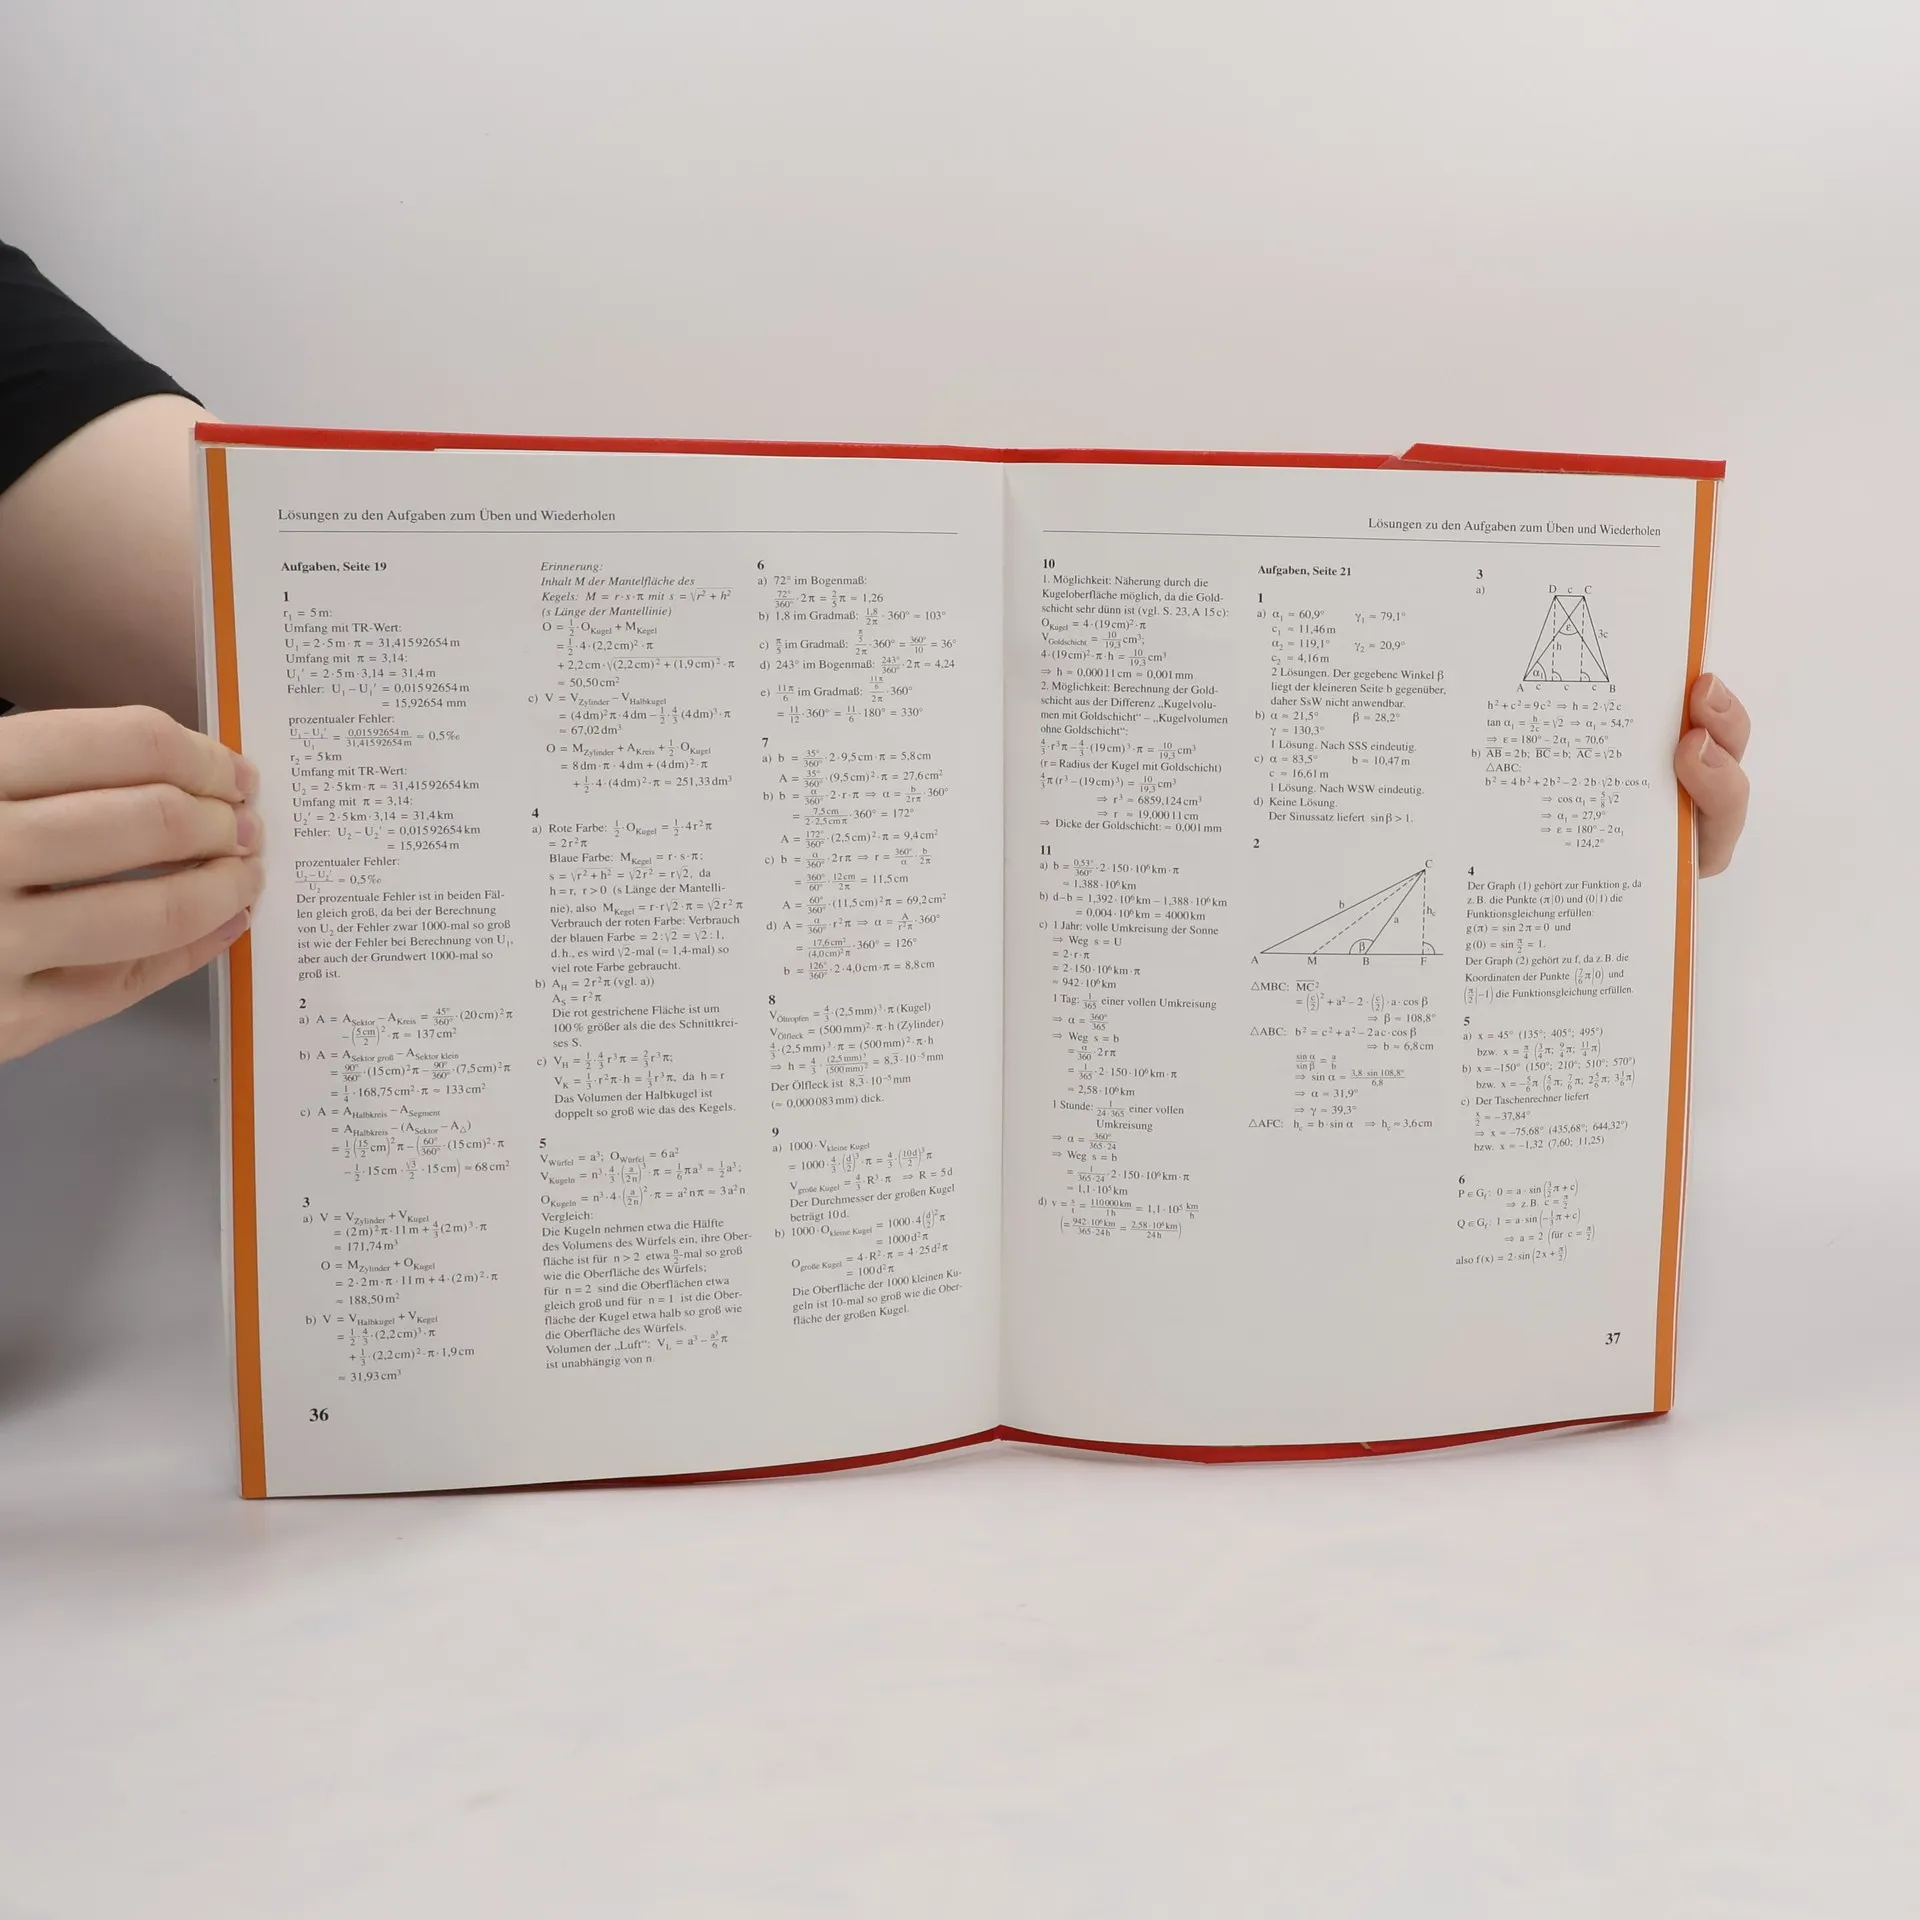 Lösungen zu den Aufgaben zum Üben und Wiederholen
Aufgaben, Seite 19
1
r₁ = 5 m:
Umfang mit TR-Wert:
U₁ = 2 · 5 m · π = 31,41592654 m
Umfang mit π = 3,14:
U₁′ = 2 · 5 m · 3,14 = 31,4 m
Fehler: U₁ − U₁′ = 0,01592654 m
= 15,92654 mm
prozentualer Fehler:
(U₁ − U₁′)/U₁ = 0,01592654 m/31,41592654 m ≈ 0,5‰
r₂ = 5 km
Umfang mit TR-Wert:
U₂ = 2 · 5 km · π = 31,41592654 km
Umfang mit π = 3,14:
U₂′ = 2 · 5 km · 3,14 = 31,4 km
Fehler: U₂ − U₂′ = 0,01592654 km
= 15,92654 m
prozentualer Fehler:
(U₂ − U₂′)/U₂ ≈ 0,5‰
Der prozentuale Fehler ist in beiden Fäl-
len gleich groß, da bei der Berechnung
von U₂ der Fehler zwar 1000-mal so groß
ist wie der Fehler bei Berechnung von U₁,
aber auch der Grundwert 1000-mal so
groß ist.
2
a) A = A_Sektor − A_Kreis = 45°/360° · (20 cm)² π
− (5 cm/2)² · π ≈ 137 cm²
b) A = A_Sektor groß − A_Sektor klein
= 90°/360° · (15 cm)² π − 90°/360° · (7,5 cm)² π
= 1/4 · 168,75 cm² · π ≈ 133 cm²
c) A = A_Halbkreis − A_Segment
= A_Halbkreis − (A_Sektor − A_△)
= 1/2 (15/2 cm)² π − (60°/360° · (15 cm)² · π
− 1/2 · 15 cm · √3/2 · 15 cm) ≈ 68 cm²
3
a) V = V_Zylinder + V_Kugel
= (2 m)² π · 11 m + 4/3 (2 m)³ · π
≈ 171,74 m³
O = M_Zylinder + O_Kugel
= 2 · 2 m · π · 11 m + 4 · (2 m)² · π
≈ 188,50 m²
b) V = V_Halbkugel + V_Kegel
= 1/2 · 4/3 · (2,2 cm)³ · π
+ 1/3 · (2,2 cm)² · π · 1,9 cm
≈ 31,93 cm³
36
Erinnerung:
Inhalt M der Mantelfläche des
Kegels: M = r · s · π mit s = √(r² + h²)
(s Länge der Mantellinie)
O = 1/2 · O_Kugel + M_Kegel
= 1/2 · 4 · (2,2 cm)² · π
+ 2,2 cm · √((2,2 cm)² + (1,9 cm)²) · π
≈ 50,50 cm²
c) V = V_Zylinder − V_Halbkugel
= (4 dm)² π · 4 dm − 1/2 · 4/3 (4 dm)³ · π
≈ 67,02 dm³
O = M_Zylinder + A_Kreis + 1/2 · O_Kugel
= 8 dm · π · 4 dm + (4 dm)² · π
+ 1/2 · 4 · (4 dm)² · π ≈ 251,33 dm²
4
a) Rote Farbe: 1/2 · O_Kugel = 1/2 · 4 r² π
= 2 r² π
Blaue Farbe: M_Kegel = r · s · π;
s = √(r² + h²) = √(2r²) = r√2, da
h = r, r > 0 (s Länge der Mantelli-
nie), also M_Kegel = r · r√2 · π = √2 r² π
Verbrauch der roten Farbe: Verbrauch
der blauen Farbe = 2 : √2 = √2 : 1,
d. h., es wird √2-mal (≈ 1,4-mal) so
viel rote Farbe gebraucht.
b) A_H = 2 r² π (vgl. a))
A_S = r² π
Die rot gestrichene Fläche ist um
100 % größer als die des Schnittkrei-
ses S.
c) V_H = 1/2 · 4/3 r³ π = 2/3 r³ π;
V_K = 1/3 · r² π · h = 1/3 r³ π, da h = r
Das Volumen der Halbkugel ist
doppelt so groß wie das des Kegels.
5
V_Würfel = a³; O_Würfel = 6 a²
V_Kugeln = n³ · 4/3 · (a/2n)³ · π = 1/6 π a³ ≈ 1/2 a³;
O_Kugeln = n³ · 4 · (a/2n)² · π = a² n π ≈ 3 a² n
Vergleich:
Die Kugeln nehmen etwa die Hälfte
des Volumens des Würfels ein, ihre Ober-
fläche ist für n > 2 etwa n/2-mal so groß
wie die Oberfläche des Würfels;
für n = 2 sind die Oberflächen etwa
gleich groß und für n = 1 ist die Ober-
fläche der Kugel etwa halb so groß wie
die Oberfläche des Würfels.
Volumen der „Luft“: V_L = a³ − a³/6 π
ist unabhängig von n.
6
a) 72° im Bogenmaß:
72°/360° · 2π = 2/5 π ≈ 1,26
b) 1,8 im Gradmaß: 1,8/2π · 360° ≈ 103°
c) π/5 im Gradmaß: (π/5)/2π · 360° = 360°/10 = 36°
d) 243° im Bogenmaß: 243°/360° · 2π ≈ 4,24
e) 11π/6 im Gradmaß: (11π/6)/2π · 360°
= 11/12 · 360° = 11/6 · 180° = 330°
7
a) b = 35°/360° · 2 · 9,5 cm · π ≈ 5,8 cm
A = 35°/360° · (9,5 cm)² · π ≈ 27,6 cm²
b) b = α/360° · 2 · r · π ⇒ α = b/2rπ · 360°
= 7,5 cm/(2 · 2,5 cm π) · 360° ≈ 172°
A = 172°/360° · (2,5 cm)² · π ≈ 9,4 cm²
c) b = α/360° · 2 r π ⇒ r = 360°/α · b/2π
= 360°/60° · 12 cm/2π ≈ 11,5 cm
A = 60°/360° · (11,5 cm)² π ≈ 69,2 cm²
d) A = α/360° · r² π ⇒ α = A/r²π · 360°
= 17,6 cm²/((4,0 cm)² π) · 360° ≈ 126°
b = 126°/360° · 2 · 4,0 cm · π ≈ 8,8 cm
8
V_Öltropfen = 4/3 · (2,5 mm)³ · π (Kugel)
V_Ölfleck = (500 mm)² · π · h (Zylinder)
4/3 · (2,5 mm)³ · π = (500 mm)² · π · h
⇒ h = 4/3 · (2,5 mm)³/(500 mm)² = 8,3̅ · 10⁻⁵ mm
Der Ölfleck ist 8,3̅ · 10⁻⁵ mm
(≈ 0,000083 mm) dick.
9
a) 1000 · V_kleine Kugel
= 1000 · 4/3 · (d/2)³ · π = 4/3 · (10d/2)³ π
V_große Kugel = 4/3 · R³ · π ⇒ R = 5 d
Der Durchmesser der großen Kugel
beträgt 10 d.
b) 1000 · O_kleine Kugel = 1000 · 4 (d/2)² π
= 1000 d² π
O_große Kugel = 4 · R² · π = 4 · 25 d² π
= 100 d² π
Die Oberfläche der 1000 kleinen Ku-
geln ist 10-mal so groß wie die Ober-
fläche der großen Kugel.
Lösungen zu den Aufgaben zum Üben und Wiederholen
10
1. Möglichkeit: Näherung durch die
Kugeloberfläche möglich, da die Gold-
schicht sehr dünn ist (vgl. S. 23, A 15 c):
O_Kugel = 4 · (19 cm)² · π
V_Goldschicht = 10/19,3 cm³;
4 · (19 cm)² · π · h = 10/19,3 cm³
⇒ h ≈ 0,00011 cm ≈ 0,001 mm
2. Möglichkeit: Berechnung der Gold-
schicht aus der Differenz „Kugelvolu-
men mit Goldschicht“ – „Kugelvolumen
ohne Goldschicht“:
4/3 · r³ π − 4/3 · (19 cm)³ · π = 10/19,3 cm³
(r = Radius der Kugel mit Goldschicht)
4/3 π (r³ − (19 cm)³) = 10/19,3 cm³
⇒ r³ ≈ 6859,124 cm³
⇒ r ≈ 19,00011 cm
⇒ Dicke der Goldschicht: ≈ 0,001 mm
11
a) b = 0,53°/360° · 2 · 150 · 10⁶ km · π
≈ 1,388 · 10⁶ km
b) d − b = 1,392 · 10⁶ km − 1,388 · 10⁶ km
= 0,004 · 10⁶ km = 4000 km
c) 1 Jahr: volle Umkreisung der Sonne
⇒ Weg s = U
= 2 · r · π
= 2 · 150 · 10⁶ km · π
≈ 942 · 10⁶ km
1 Tag: 1/365 einer vollen Umkreisung
⇒ α = 360°/365
⇒ Weg s = b
= α/360 · 2 r π
= 1/365 · 2 · 150 · 10⁶ km · π
≈ 2,58 · 10⁶ km
1 Stunde: 1/(24 · 365) einer vollen
Umkreisung
⇒ α = 360°/(365 · 24)
⇒ Weg s = b
= 1/(365 · 24) · 2 · 150 · 10⁶ km · π
≈ 1,1 · 10⁵ km
d) v = s/t = 110 000 km/1 h = 1,1 · 10⁵ km/h
(= 942 · 10⁶ km/(365 · 24 h) = 2,58 · 10⁶ km/24 h)
Aufgaben, Seite 21
1
a) α₁ ≈ 60,9° γ₁ ≈ 79,1°
c₁ ≈ 11,46 m
α₂ ≈ 119,1° γ₂ ≈ 20,9°
c₂ ≈ 4,16 m
2 Lösungen. Der gegebene Winkel β
liegt der kleineren Seite b gegenüber,
daher SsW nicht anwendbar.
b) α ≈ 21,5° β ≈ 28,2°
γ ≈ 130,3°
1 Lösung. Nach SSS eindeutig.
c) α = 83,5° b ≈ 10,47 m
c ≈ 16,61 m
1 Lösung. Nach WSW eindeutig.
d) Keine Lösung.
Der Sinussatz liefert sin β > 1.
2
C
b
a
h_c
β
A M B F
△MBC: MC̅²
= (c/2)² + a² − 2 · (c/2) · a · cos β
⇒ β ≈ 108,8°
△ABC: b² = c² + a² − 2 a c · cos β
⇒ b ≈ 6,8 cm
sin α/sin β = a/b
⇒ sin α = 3,8 · sin 108,8°/6,8
⇒ α ≈ 31,9°
⇒ γ ≈ 39,3°
△AFC: h_c = b · sin α ⇒ h_c ≈ 3,6 cm
3
a)
D c C
ε
3c
h
α₁
A c c c B
h² + c² = 9c² ⇒ h = 2 · √2 c
tan α₁ = h/2c = √2 ⇒ α₁ ≈ 54,7°
⇒ ε = 180° − 2α₁ ≈ 70,6°
b) AB̅ = 2b; BC̅ = b; AC̅ = √2 b
△ABC:
b² = 4b² + 2b² − 2 · 2b · √2 b · cos α₁
⇒ cos α₁ = 5/8 √2
⇒ α₁ ≈ 27,9°
⇒ ε = 180° − 2α₁
≈ 124,2°
4
Der Graph (1) gehört zur Funktion g, da
z. B. die Punkte (π|0) und (0|1) die
Funktionsgleichung erfüllen:
g(π) = sin 2π = 0 und
g(0) = sin π/2 = 1.
Der Graph (2) gehört zu f, da z. B. die
Koordinaten der Punkte (7/6 π|0) und
(π/2|−1) die Funktionsgleichung erfüllen.
5
a) x = 45° (135°; 405°; 495°)
bzw. x = π/4 (3/4 π; 9/4 π; 11/4 π)
b) x = −150° (150°; 210°; 510°; 570°)
bzw. x = −5/6 π (5/6 π; 7/6 π; 2 5/6 π; 3 1/6 π)
c) Der Taschenrechner liefert
x/2 ≈ −37,84°
⇒ x ≈ −75,68° (435,68°; 644,32°)
bzw. x ≈ −1,32 (7,60; 11,25)
6
P ∈ G_f: 0 = a · sin (3/2 π + c)
⇒ z. B. c = π/2
Q ∈ G_f: 1 = a · sin (−1/3 π + c)
⇒ a = 2 (für c = π/2)
also f(x) = 2 · sin (2x + π/2)
37